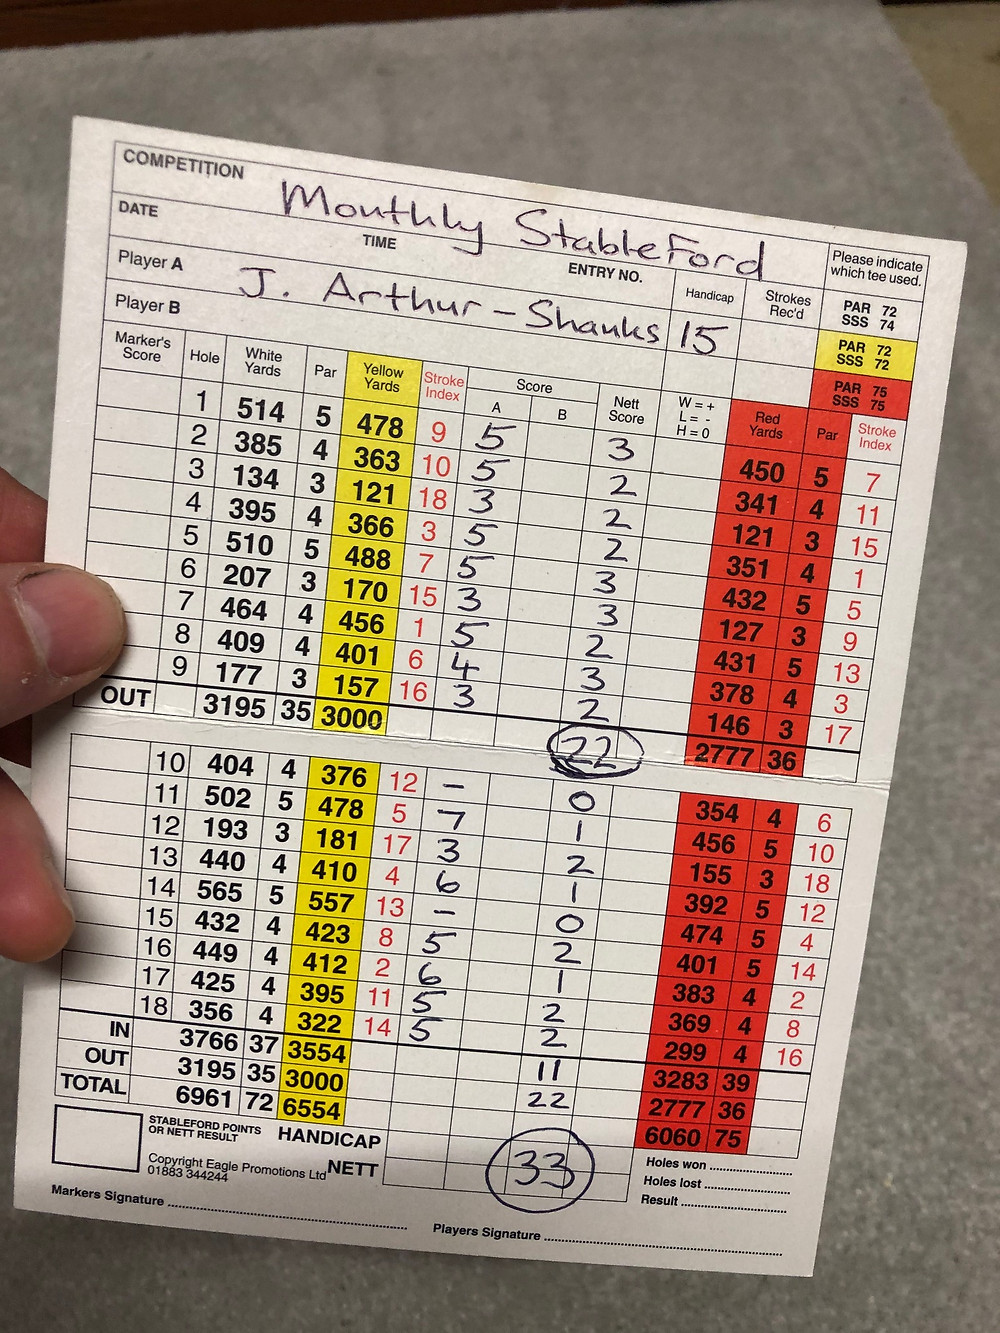 COMPETITION Monthly StableFord
DATE TIME ENTRY NO. Handicap Strokes Rec'd Please indicate which tee used.
Player A J. Arthur-Shanks 15 PAR 72 SSS 74
Player B PAR 72 SSS 72
PAR 75 SSS 75
Marker's Score Hole White Yards Par Yellow Yards Stroke Index Score A B Nett Score W = + L = - H = 0 Red Yards Par Stroke Index
1 514 5 478 9 5 3 450 5 7
2 385 4 363 10 5 2 341 4 11
3 134 3 121 18 3 2 121 3 15
4 395 4 366 3 5 2 351 4 1
5 510 5 488 7 5 3 432 5 5
6 207 3 170 15 3 3 127 3 9
7 464 4 456 1 5 2 431 5 13
8 409 4 401 6 4 3 378 4 3
9 177 3 157 16 3 2 146 3 17
OUT 3195 35 3000 22 2777 36
10 404 4 376 12 - 0 354 4 6
11 502 5 478 5 7 1 456 5 10
12 193 3 181 17 3 2 155 3 18
13 440 4 410 4 6 1 392 5 12
14 565 5 557 13 - 0 474 5 4
15 432 4 423 8 5 2 401 5 14
16 449 4 412 2 6 1 383 4 2
17 425 4 395 11 5 2 369 4 8
18 356 4 322 14 5 2 299 4 16
IN 3766 37 3554 11 3283 39
OUT 3195 35 3000 22 2777 36
TOTAL 6961 72 6554 6060 75
STABLEFORD POINTS OR NETT RESULT HANDICAP
Copyright Eagle Promotions Ltd 01883 344244 NETT 33
Holes won
Holes lost
Result
Markers Signature Players Signature